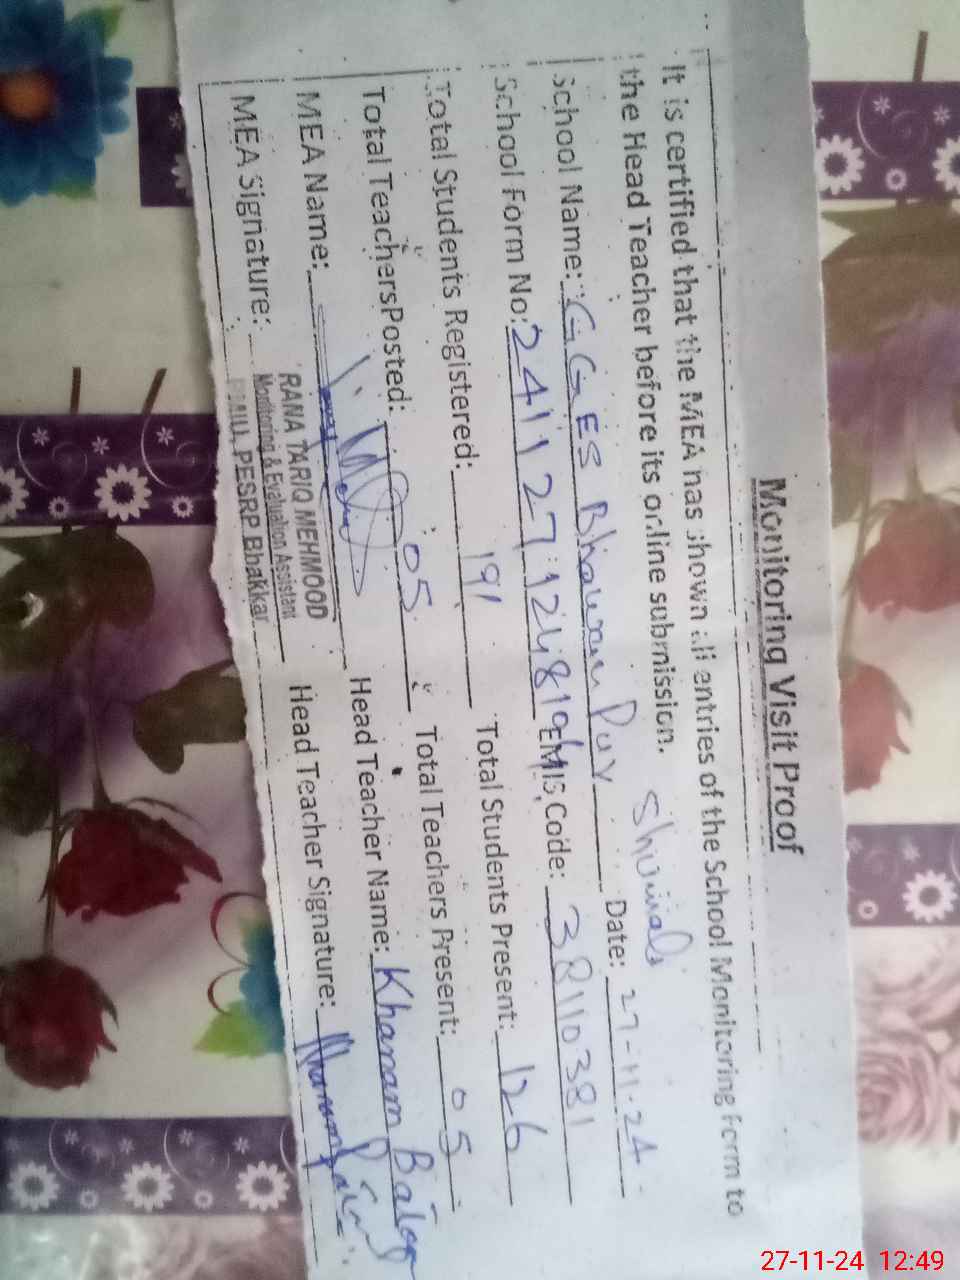 Monitoring Visit Proof
It is certified that the MEA has shown all entries of the School Monitoring Form to
the Head Teacher before its online submission.
School Name: GGES Bhawan Pur Shumali Date: 27-11-24
School Form No: 241127124819 EMIS Code: 38110381
Total Students Registered: 191 Total Students Present: 126
Total Teachers Posted: 05 Total Teachers Present: 05
MEA Name: Head Teacher Name: Khanam
MEA Signature: Head Teacher Signature:
RANA TARIQ MEHMOOD
Monitoring & Evaluation Assistant
PESRP Bhakkar
27-11-24 12:49